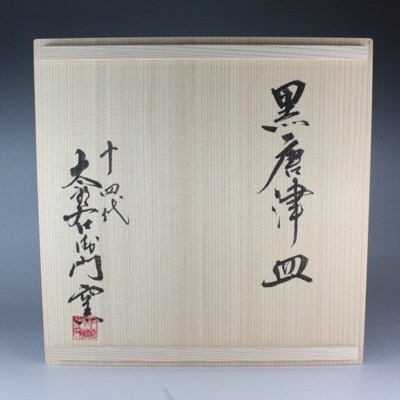 黒唐津皿
十四代
太郎右衛門窯